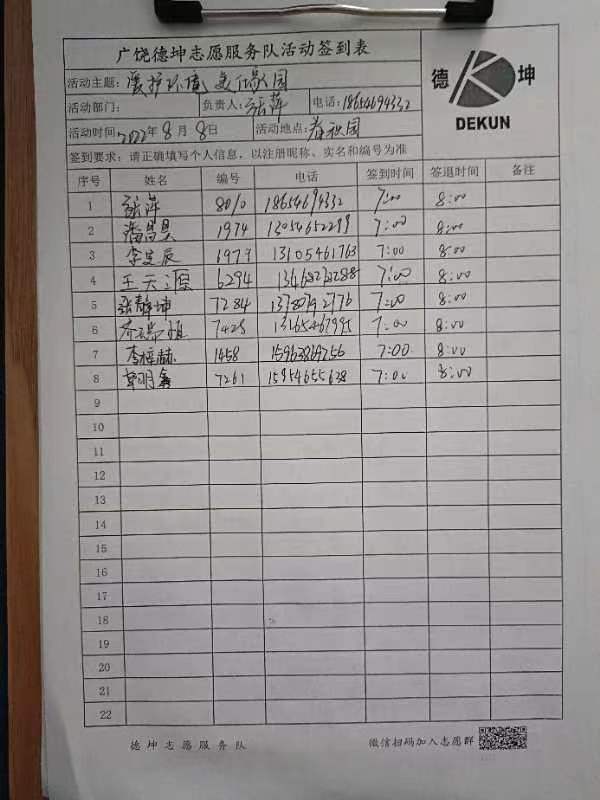 广饶德坤志愿服务队活动签到表
德 坤
DEKUN
活动主题: 爱护环境 美化家园
活动部门: 负责人: 张萍 电话: 18654694332
活动时间 2022年8月8日 活动地点: 春秋园
签到要求: 请正确填写个人信息, 以注册昵称、实名和编号为准
序号 姓名 编号 电话 签到时间 签退时间 备注
1 张萍 8010 18654694332 7:00 8:00
2 潘昌昊 1974 13054652299 7:00 8:00
3 李 辰 13105461763 7:00 8:00
4 王天 6294 7:00 8:00
5 张静坤 7284 7:00 8:00
6 7428 7:00 8:00
7 李梓赫 1458 7:00 8:00
8 明鑫 7261 15954655638 7:00 8:00
9
10
11
12
13
14
15
16
17
18
19
20
21
22
德坤志愿服务队 微信扫码加入志愿群